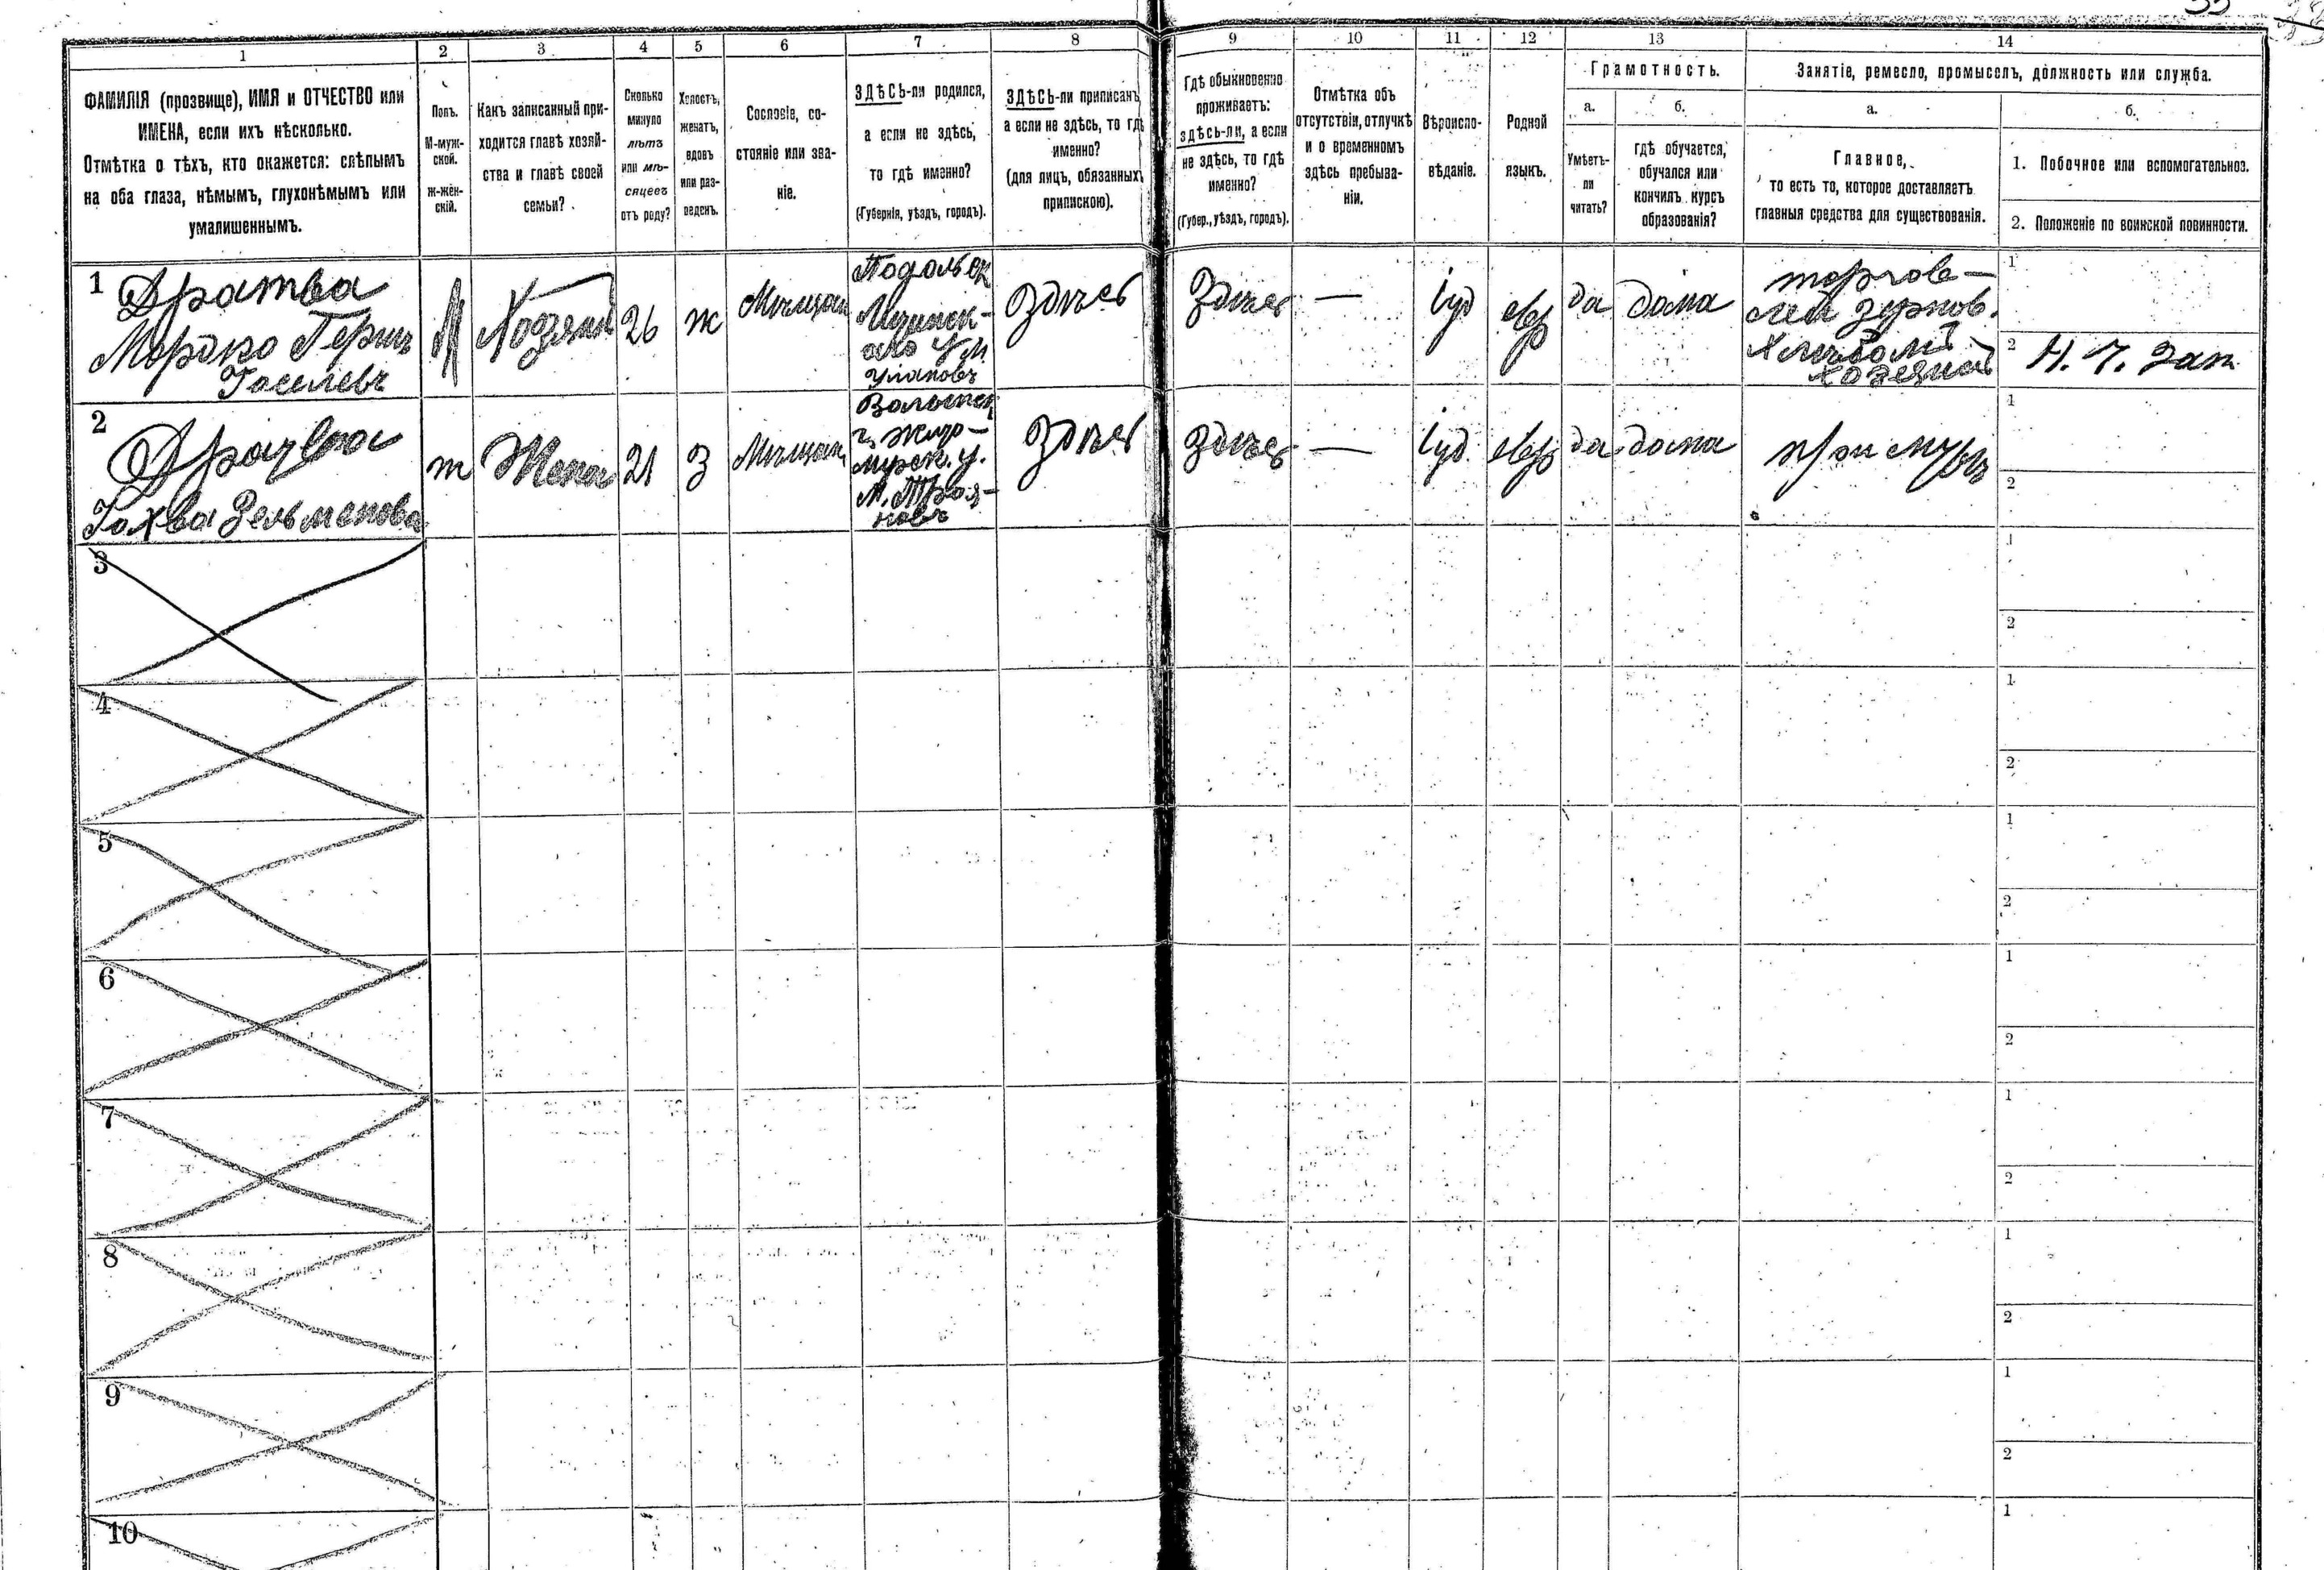 1
2
3
4
5
6
7
8
9
10
11
12
13
14
ФАМИЛІЯ (прозвище), ИМЯ и ОТЧЕСТВО или
ИМЕНА, если ихъ нѣсколько.
Отмѣтка о тѣхъ, кто окажется: слѣпымъ
на оба глаза, нѣмымъ, глухонѣмымъ или
умалишеннымъ.
Полъ.
М-муж-
ской.
ж-жен-
скій.
Какъ записанный при-
ходится главѣ хозяй-
ства и главѣ своей
семьи?
Сколько
минуло
лѣтъ
или мѣ-
сяцевъ
отъ роду?
Холостъ,
женатъ,
вдовъ
или раз-
веденъ.
Сословіе, со-
стояніе или зва-
ніе.
ЗДѢСЬ-ли родился,
а если не здѣсь,
то гдѣ именно?
(Губернія, уѣздъ, городъ).
ЗДѢСЬ-ли приписанъ,
а если не здѣсь, то гдѣ
именно?
(для лицъ, обязанныхъ
припискою).
Гдѣ обыкновенно
проживаетъ:
здѣсь-ли, а если
не здѣсь, то гдѣ
именно?
(Губер., уѣздъ, городъ).
Отмѣтка объ
отсутствіи, отлучкѣ
и о временномъ
здѣсь пребыва-
ніи.
Вѣроиспо-
вѣданіе.
Родной
языкъ.
Грамотность.
а.
Умѣетъ-
ли
читать?
б.
гдѣ обучается,
обучался или
кончилъ курсъ
образованія?
Занятіе, ремесло, промыселъ, должность или служба.
а.
Главное,
то есть то, которое доставляетъ
главныя средства для существованія.
б.
1. Побочное или вспомогательное.
2. Положеніе по воинской повинности.
1
Дратва
Мордко Гершъ
Іоселевъ
М
Хозяинъ
26
ж
Мѣщан
Подольск
У М.
Улановъ
Здѣсь
Здѣсь
—
іуд
евр
да
дома
торгов-
лей зернов.
хлѣбомъ
1
2
Н. Ч. Зап
2
Зельменова
ж
Жена
21
З
Мѣщан
Волынск
г. Жито-
мирск. у.
М. Троя-
новъ
Здѣсь
Здѣсь
—
іуд
евр
да
дома
при мужѣ
1
2
3
1
2
4
1
2
5
1
2
6
1
2
7
1
2
8
1
2
9
1
2
10
1